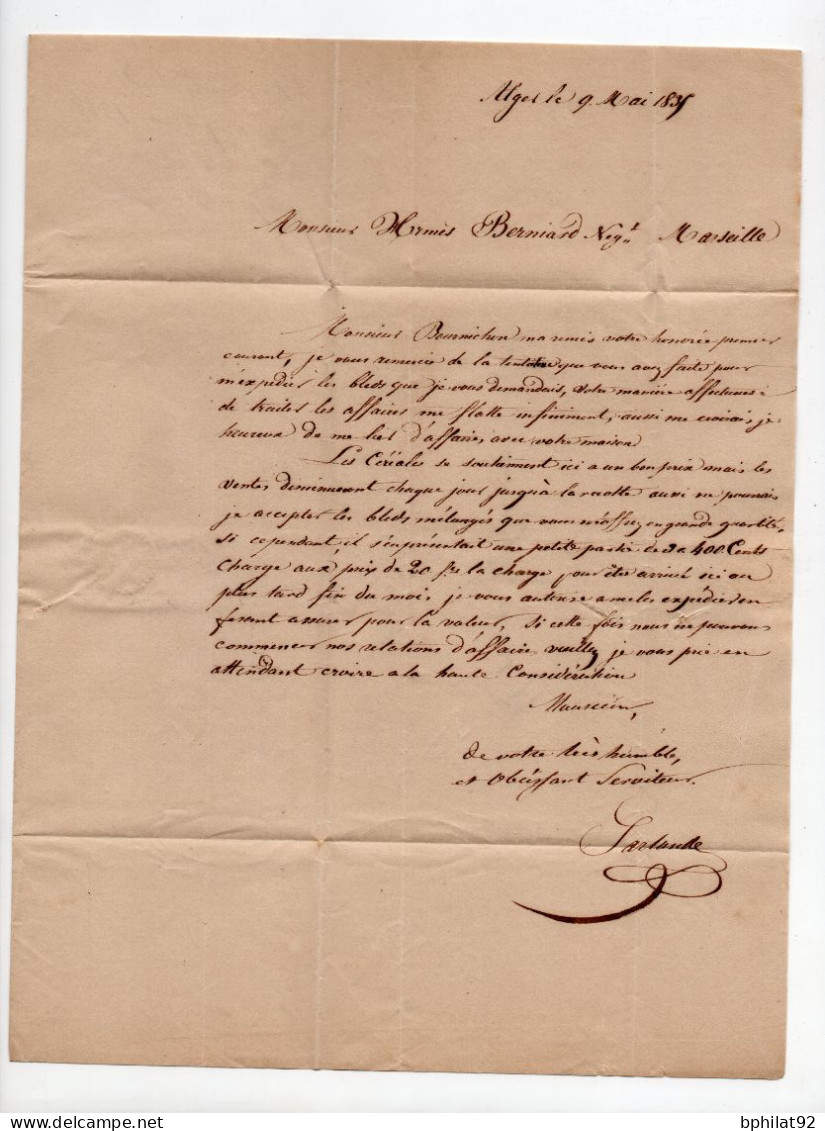 Alger le 9. Mai 1835
Monsieur Hermès Berniard Nég.t Marseille
Monsieur Bournichon m'a remis votre honorée premier
courant, je vous remercie de la tentative que vous avez faite pour
m'expédier les bleds que je vous demandais, votre manière affectueuse
de traiter les affaires me flatte infiniment, aussi me croirais je
heureux de me lier d'affaires avec votre maison
Les Céréales se soutiennent ici a un bon prix mais les
ventes diminueront chaque jour jusqu'à la recolte aussi ne pourrais
je accepter les bleds mélangés que vous m'offrez en grande quantité,
si cependant, il s'en présentait une petite partie de 3 a 400 Cents
Charge aux prix de 20 frs la charge pour être arrivé ici au
plus tard fin du mois, je vous autorise a me les expédier en
fesant assurer pour la valeur, si cette fois nous ne pouvons
commencer nos relations d'affaires veuillez je vous prie en
attendant croire a la haute Considération
Monsieur,
de votre très humble,
et Obéissant Serviteur.
Sarlande
bphilat92